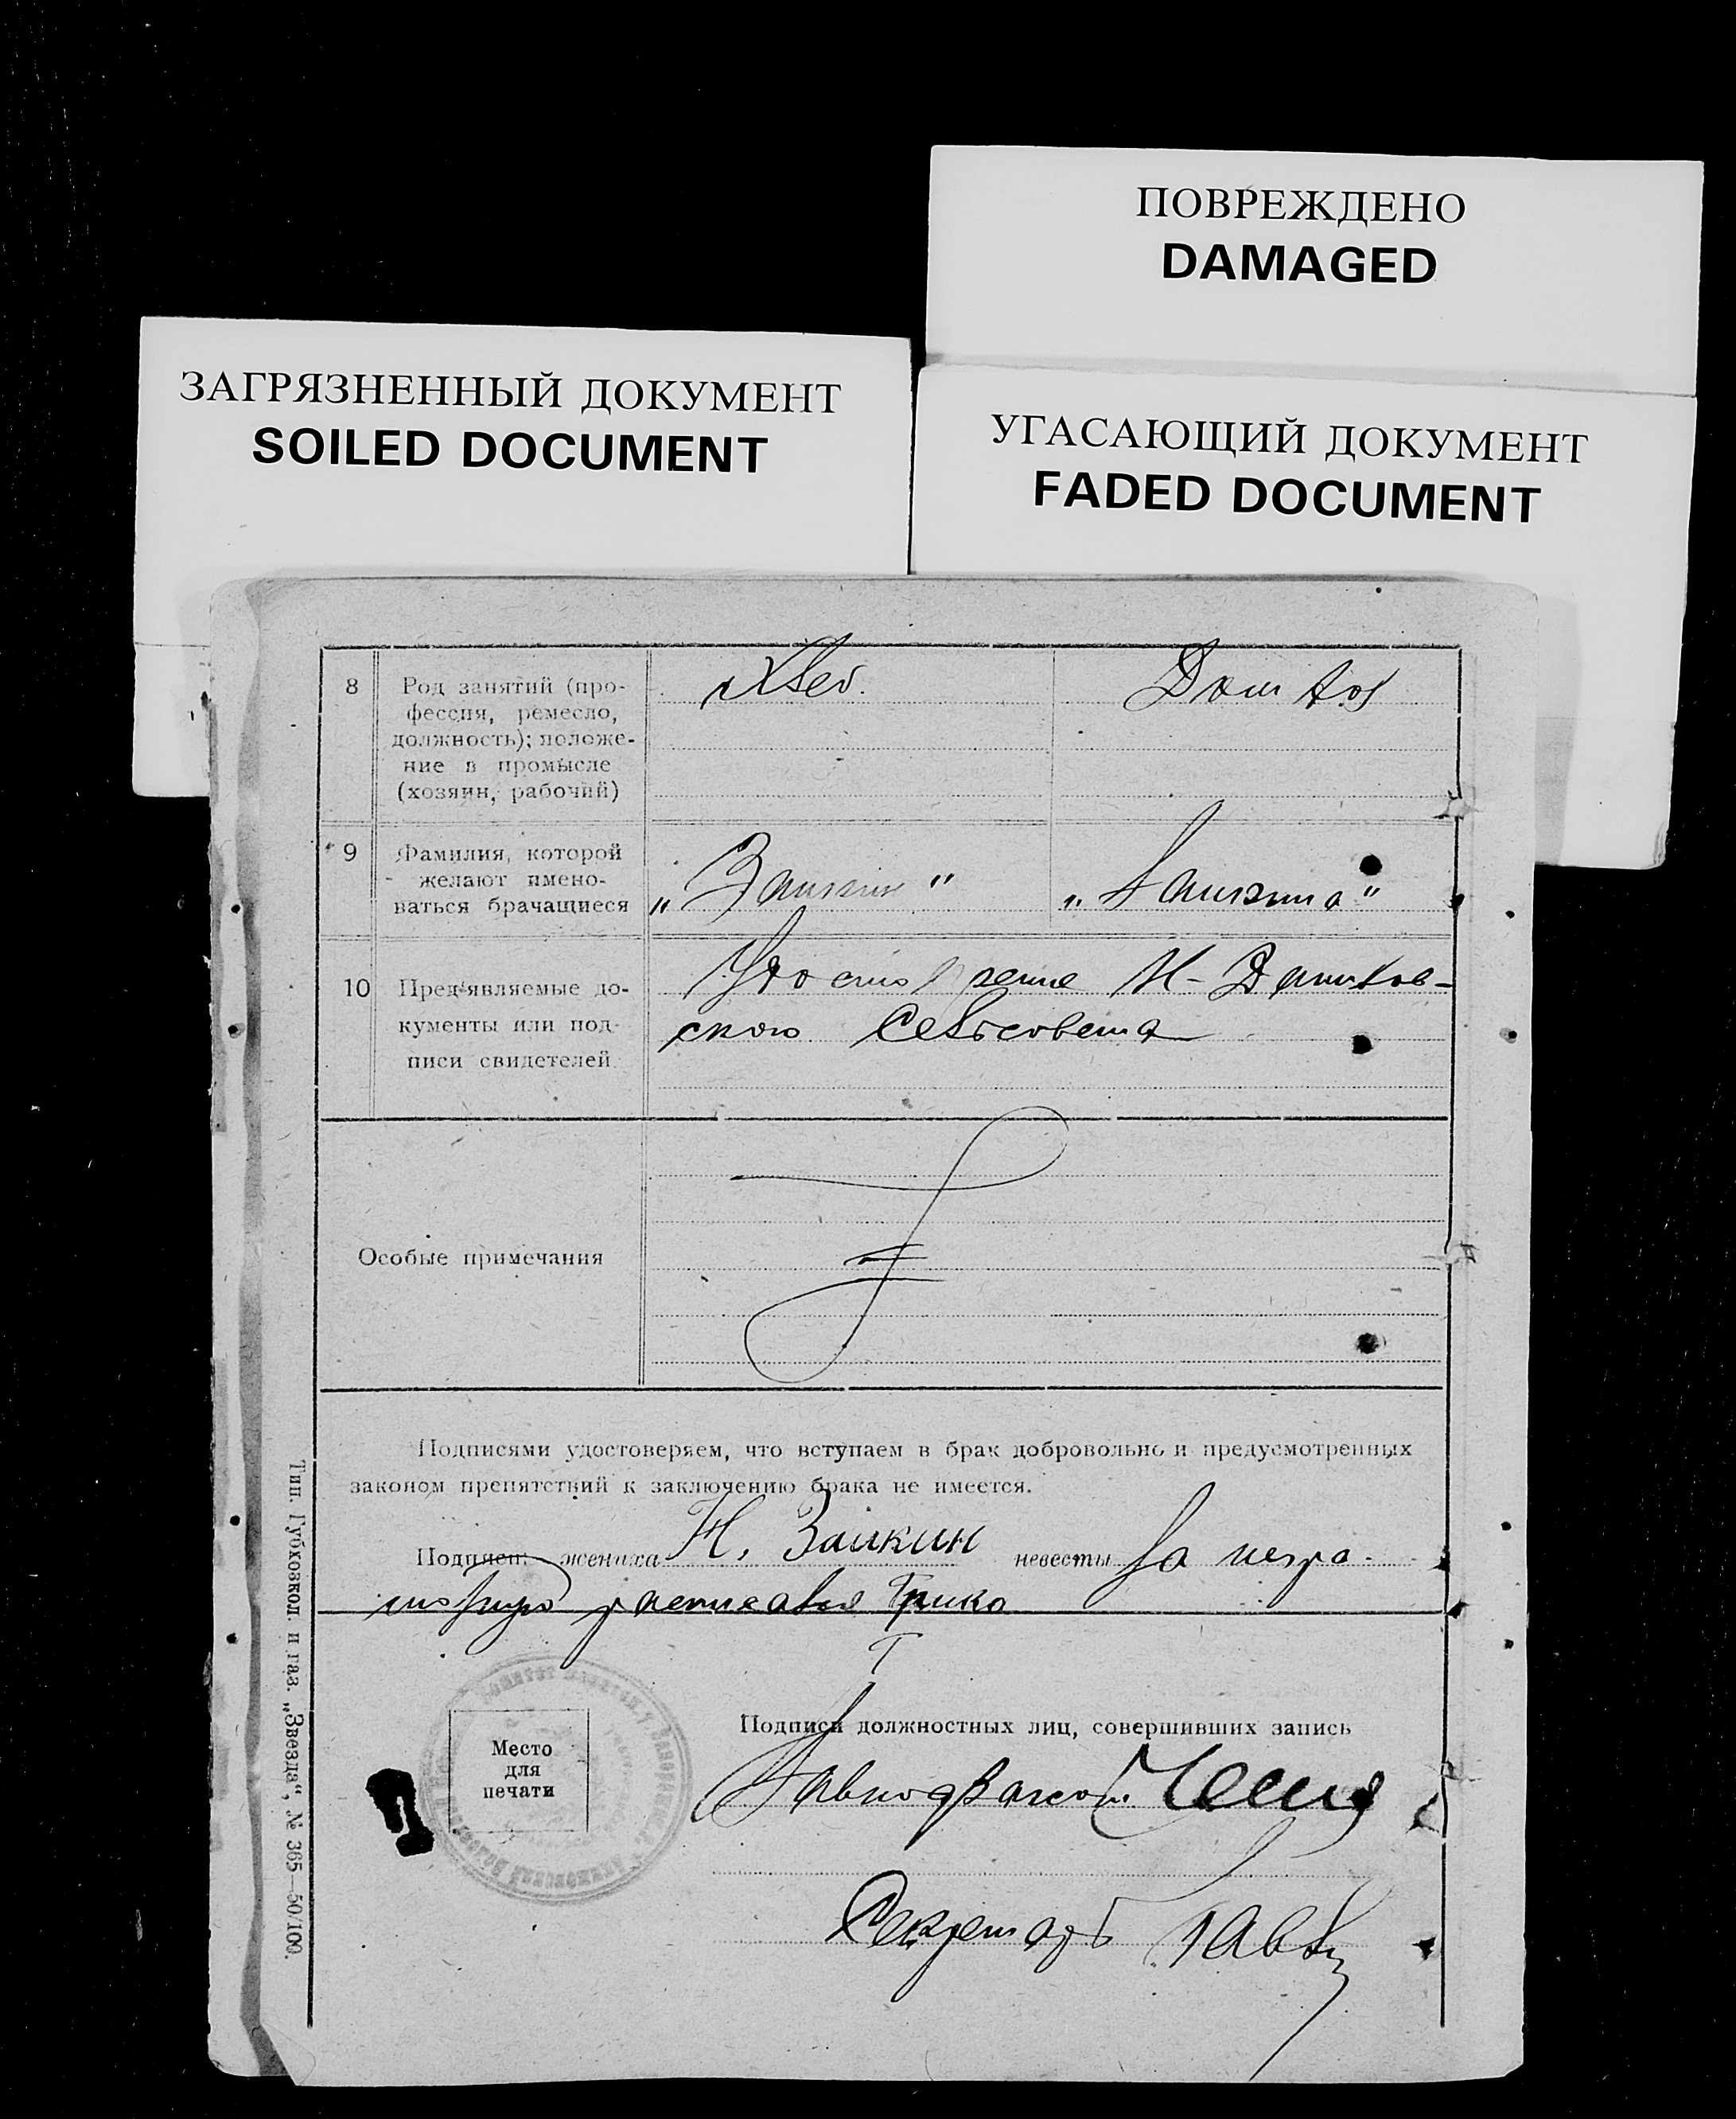 ПОВРЕЖДЕНО
DAMAGED
ЗАГРЯЗНЕННЫЙ ДОКУМЕНТ
SOILED DOCUMENT
УГАСАЮЩИЙ ДОКУМЕНТ
FADED DOCUMENT
8 Род занятий (про-
фессия, ремесло,
должность); положе-
ние в промысле
(хозяин, рабочий)
Хлеб.
Дом хоз
9 Фамилия, которой
желают имено-
ваться брачащиеся
„Заикин"
„Заикина"
10 Пред'являемые до-
кументы или под-
писи свидетелей
Удостоврение Н-
ского Сельсовета
Особые примечания
Подписями удостоверяем, что вступаем в брак добровольно и предусмотренных
законом препятствий к заключению брака не имеется.
Подписи: жениха Н. Заикин невесты За негра-
мотную расписался
Место
для
печати
Подписи должностных лиц, совершивших запись
Секретарь
Тип. Губхозкол. и газ. „Звезда", № 365—50/100.